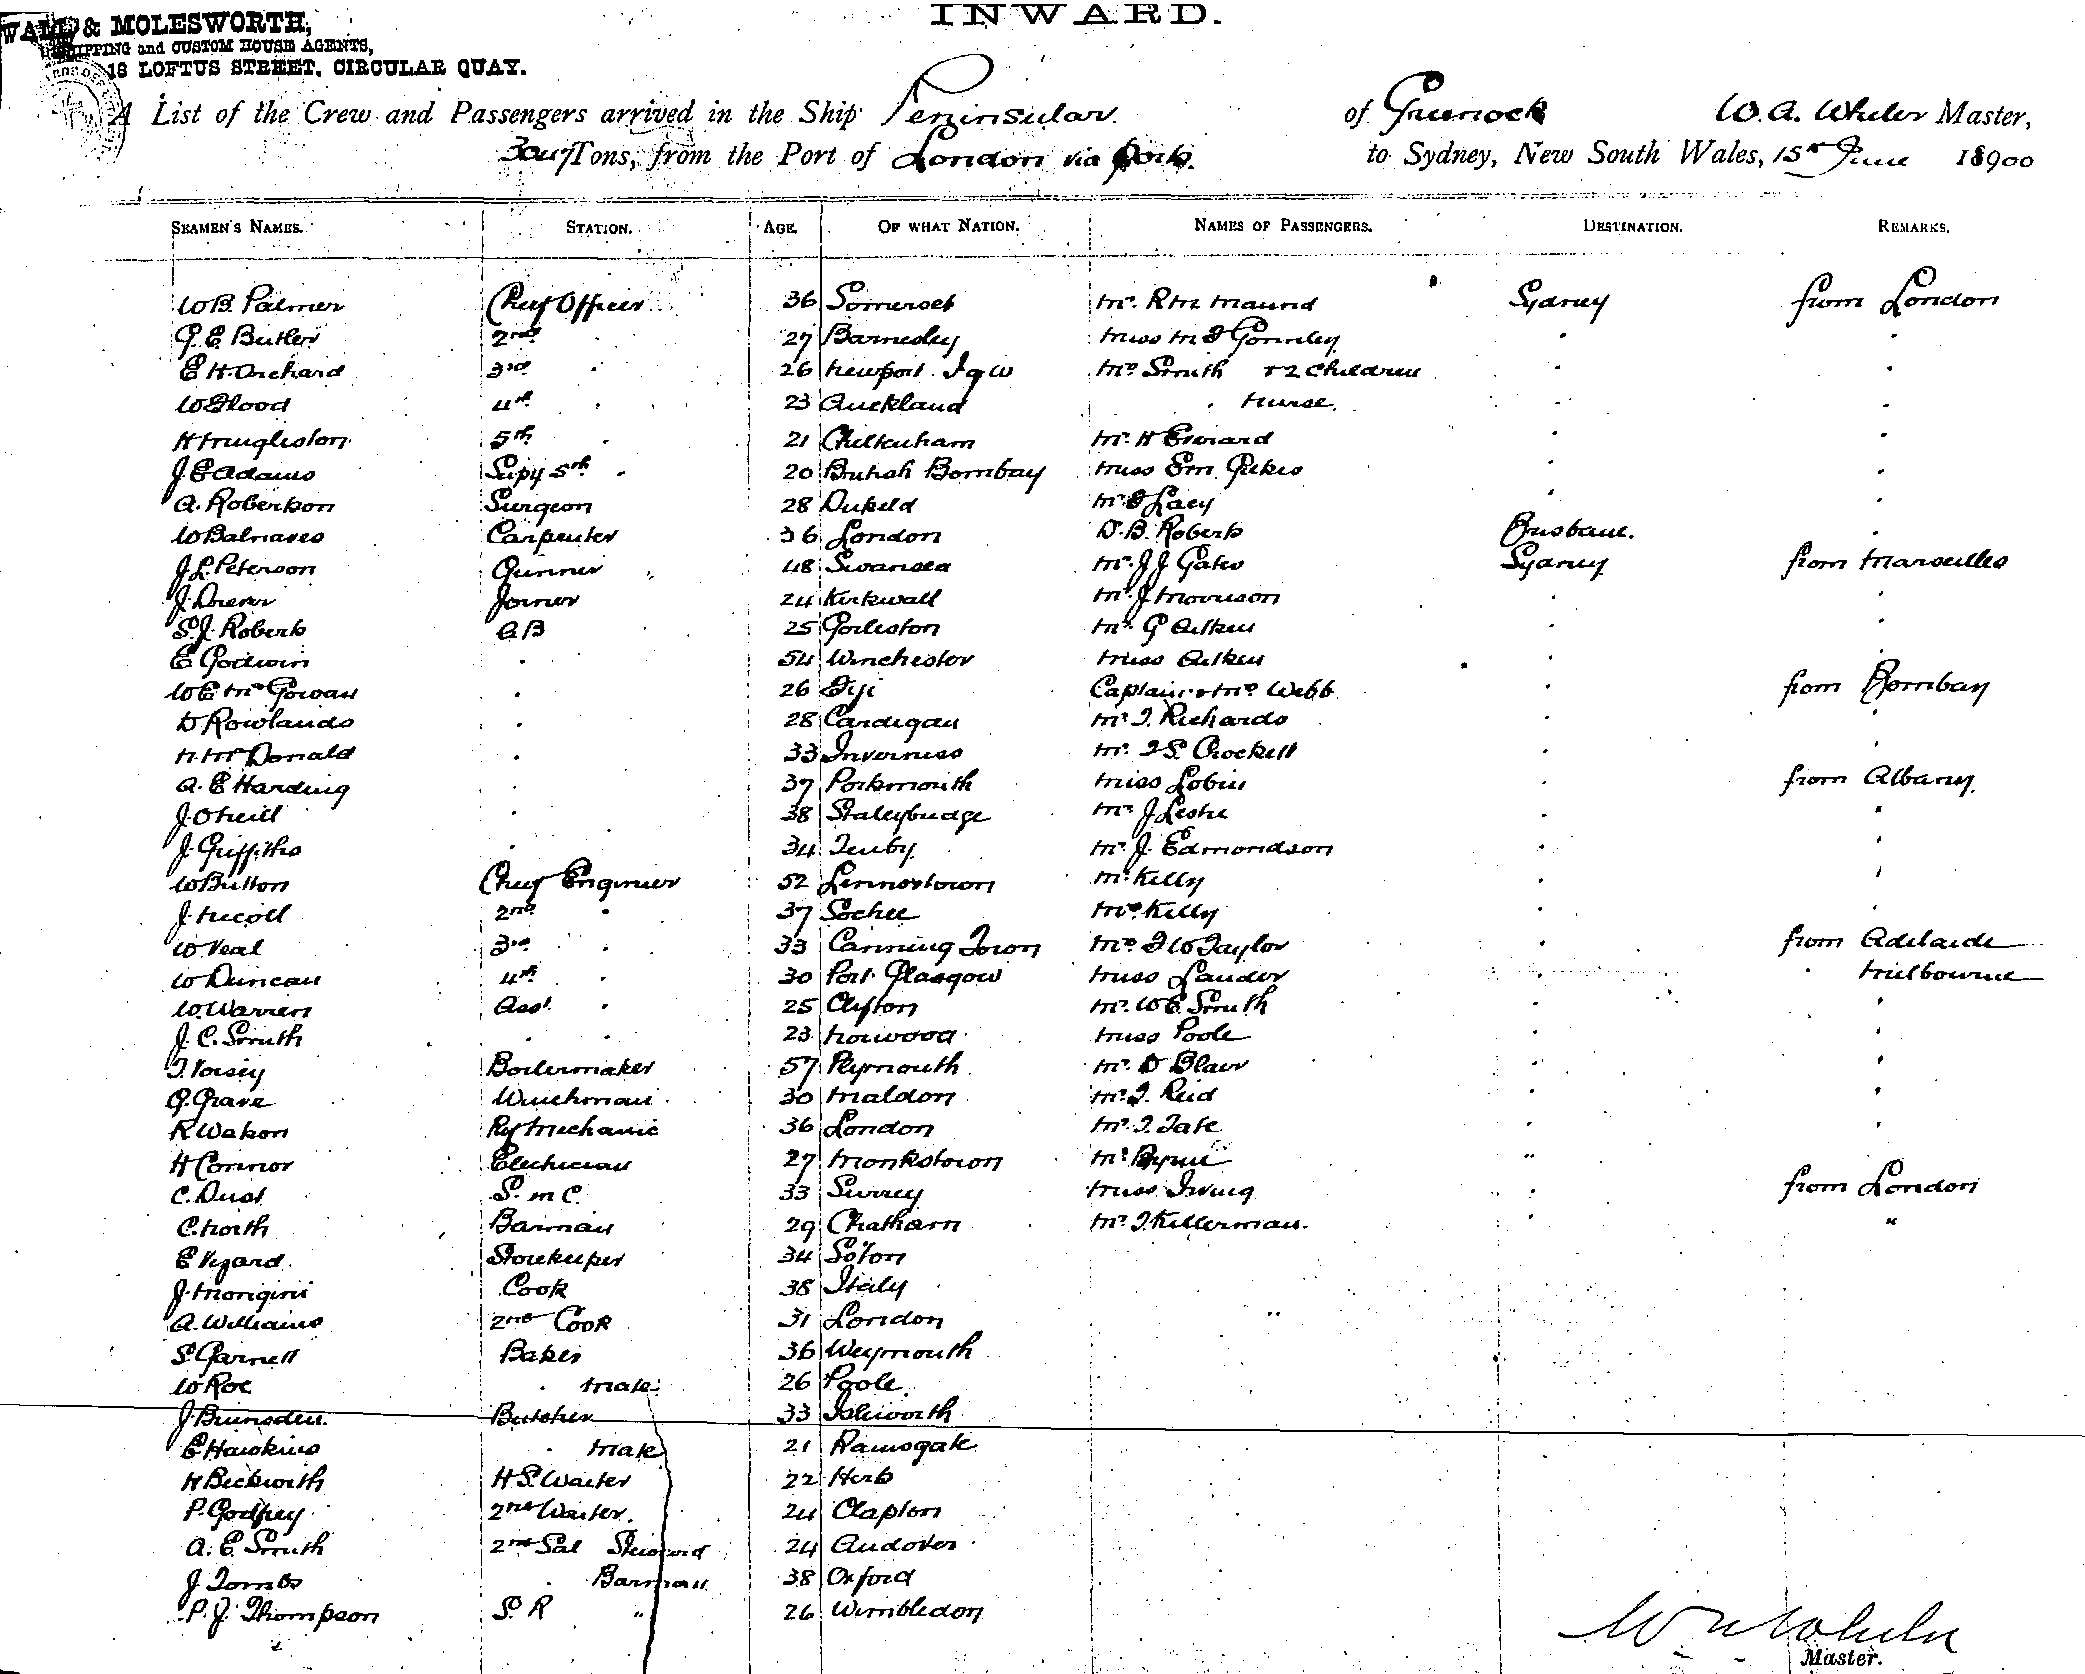 WALL & MOLESWORTH,
SHIPPING and CUSTOM HOUSE AGENTS,
18 LOFTUS STREET, CIRCULAR QUAY.
INWARD.
A List of the Crew and Passengers arrived in the Ship Peninsular of Greenock W. A. Wheler Master,
Tons, from the Port of London via Ports. to Sydney, New South Wales, 15th June 18900
SEAMEN'S NAMES. STATION. AGE. OF WHAT NATION. NAMES OF PASSENGERS. DESTINATION. REMARKS.
W B. Palmer Chief Officer 36 Somerset Mr. R M Maund Sydney from London
G. E Butler 2nd " 27 Barnesley Miss M I Gormley " "
E H Orchard 3rd " 26 Newport. I of W Mrs Smith + 2 Children " "
W Flood 4th " 23 Auckland " Nurse. " "
H Mugliston 5th " 21 Cheltenham Mr. H Edward " "
J E Adams Supy 5th " 20 British Bombay Miss Em. Jukes " "
A. Robertson Surgeon 28 Dukeld Lacy " "
W Balnaves Carpenter 36 London D. B. Roberts Brisbane. "
J L Peterson Gunner 48 Swansea Mr. J J Gates Sydney from Marseilles
J. Drever Joiner 24 Kirkwall Mr J Morrison " "
S. J. Roberts A B 25 Gorleston Mrs G Aitken " "
E Godwin " 54 Winchester Miss Aitken " "
W E McGowan " 26 Fiji Captain + Mrs Webb " from Bombay
D Rowlands " 28 Cardigan Mr T. Richards " "
N McDonald " 33 Inverness Mr. I S. Crockett " "
A. E Harding " 37 Portsmouth Miss Lobin " from Albany
J. O'Neill " 38 Staleybridge Mr J Leslie " "
J. Griffiths " 34 Tenby Mr J. Edmondson " "
W Button Chief Engineer 52 Lennoxtown Mr Kelly " "
J. Nicoll 2nd " 37 Lochee Mrs. Kelly " "
W Veal 3rd " 33 Canning Town Mrs I W Taylor " from Adelaide
W Duncan 4th " 30 Port Glasgow Miss Lander " " Melbourne
W. Warren Asst. " 25 Clifton Mr. W E. Smith " "
J. C. Smith " " 23 Norwood Miss Poole " "
T. Vorsey Boilermaker 57 Plymouth Mr. D Blair " "
G. Grave Winchman 30 Maldon Mr. T. Reid " "
R Watson Rfg Mechanic 36 London Mr. T. Tate " "
H Connor Electrician 27 Monkstown Mr Byrne " "
C. Dust S. M C. 33 Surrey Miss Irving " from London
C. North Barman 29 Chatham Mr. T. Killerman. " "
E Vizard. Storekeeper 34 So'ton
J. Mongini Cook 38 Italy
A. Williams 2nd Cook 31 London
S. Garnett Baker 36 Weymouth
W Roe " Mate 26 Poole.
J Brunsden. Butcher 33 Isleworth
E Hawkins " Mate 21 Ramsgate
H Beckworth H S. Waiter 22 Herts
P. Godfrey 2nd Waiter. 24 Clapton
A. E. Smith 2nd Sal Steward 24 Andover
J Tombs " Barman 38 Oxford
P. J. Thompson S. R " 26 Wimbledon
W A Wheler
Master.